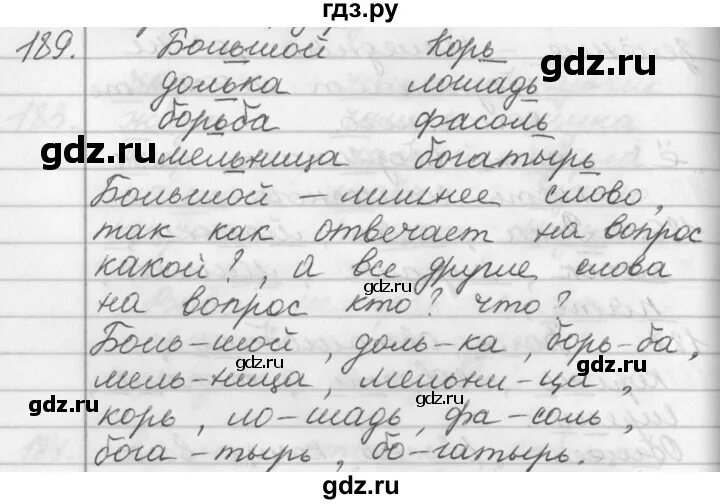 гдз.ру
189. Большой корь
долька лошадь
борьба фасоль
мельница богатырь
Большой — лишнее слово,
так как отвечает на вопрос
какой?, а все другие слова
на вопрос кто? что?
Боль-шой, доль-ка, борь-ба,
мель-ница, мельни-ца,
корь, ло-шадь, фа-соль,
бога-тырь, бо-гатырь.
gdz.ru
gdz.ru
gdz.ru
gdz.ru
gdz.ru
gdz.ru
gdz.ru
gdz.ru
gdz.ru
gdz.ru